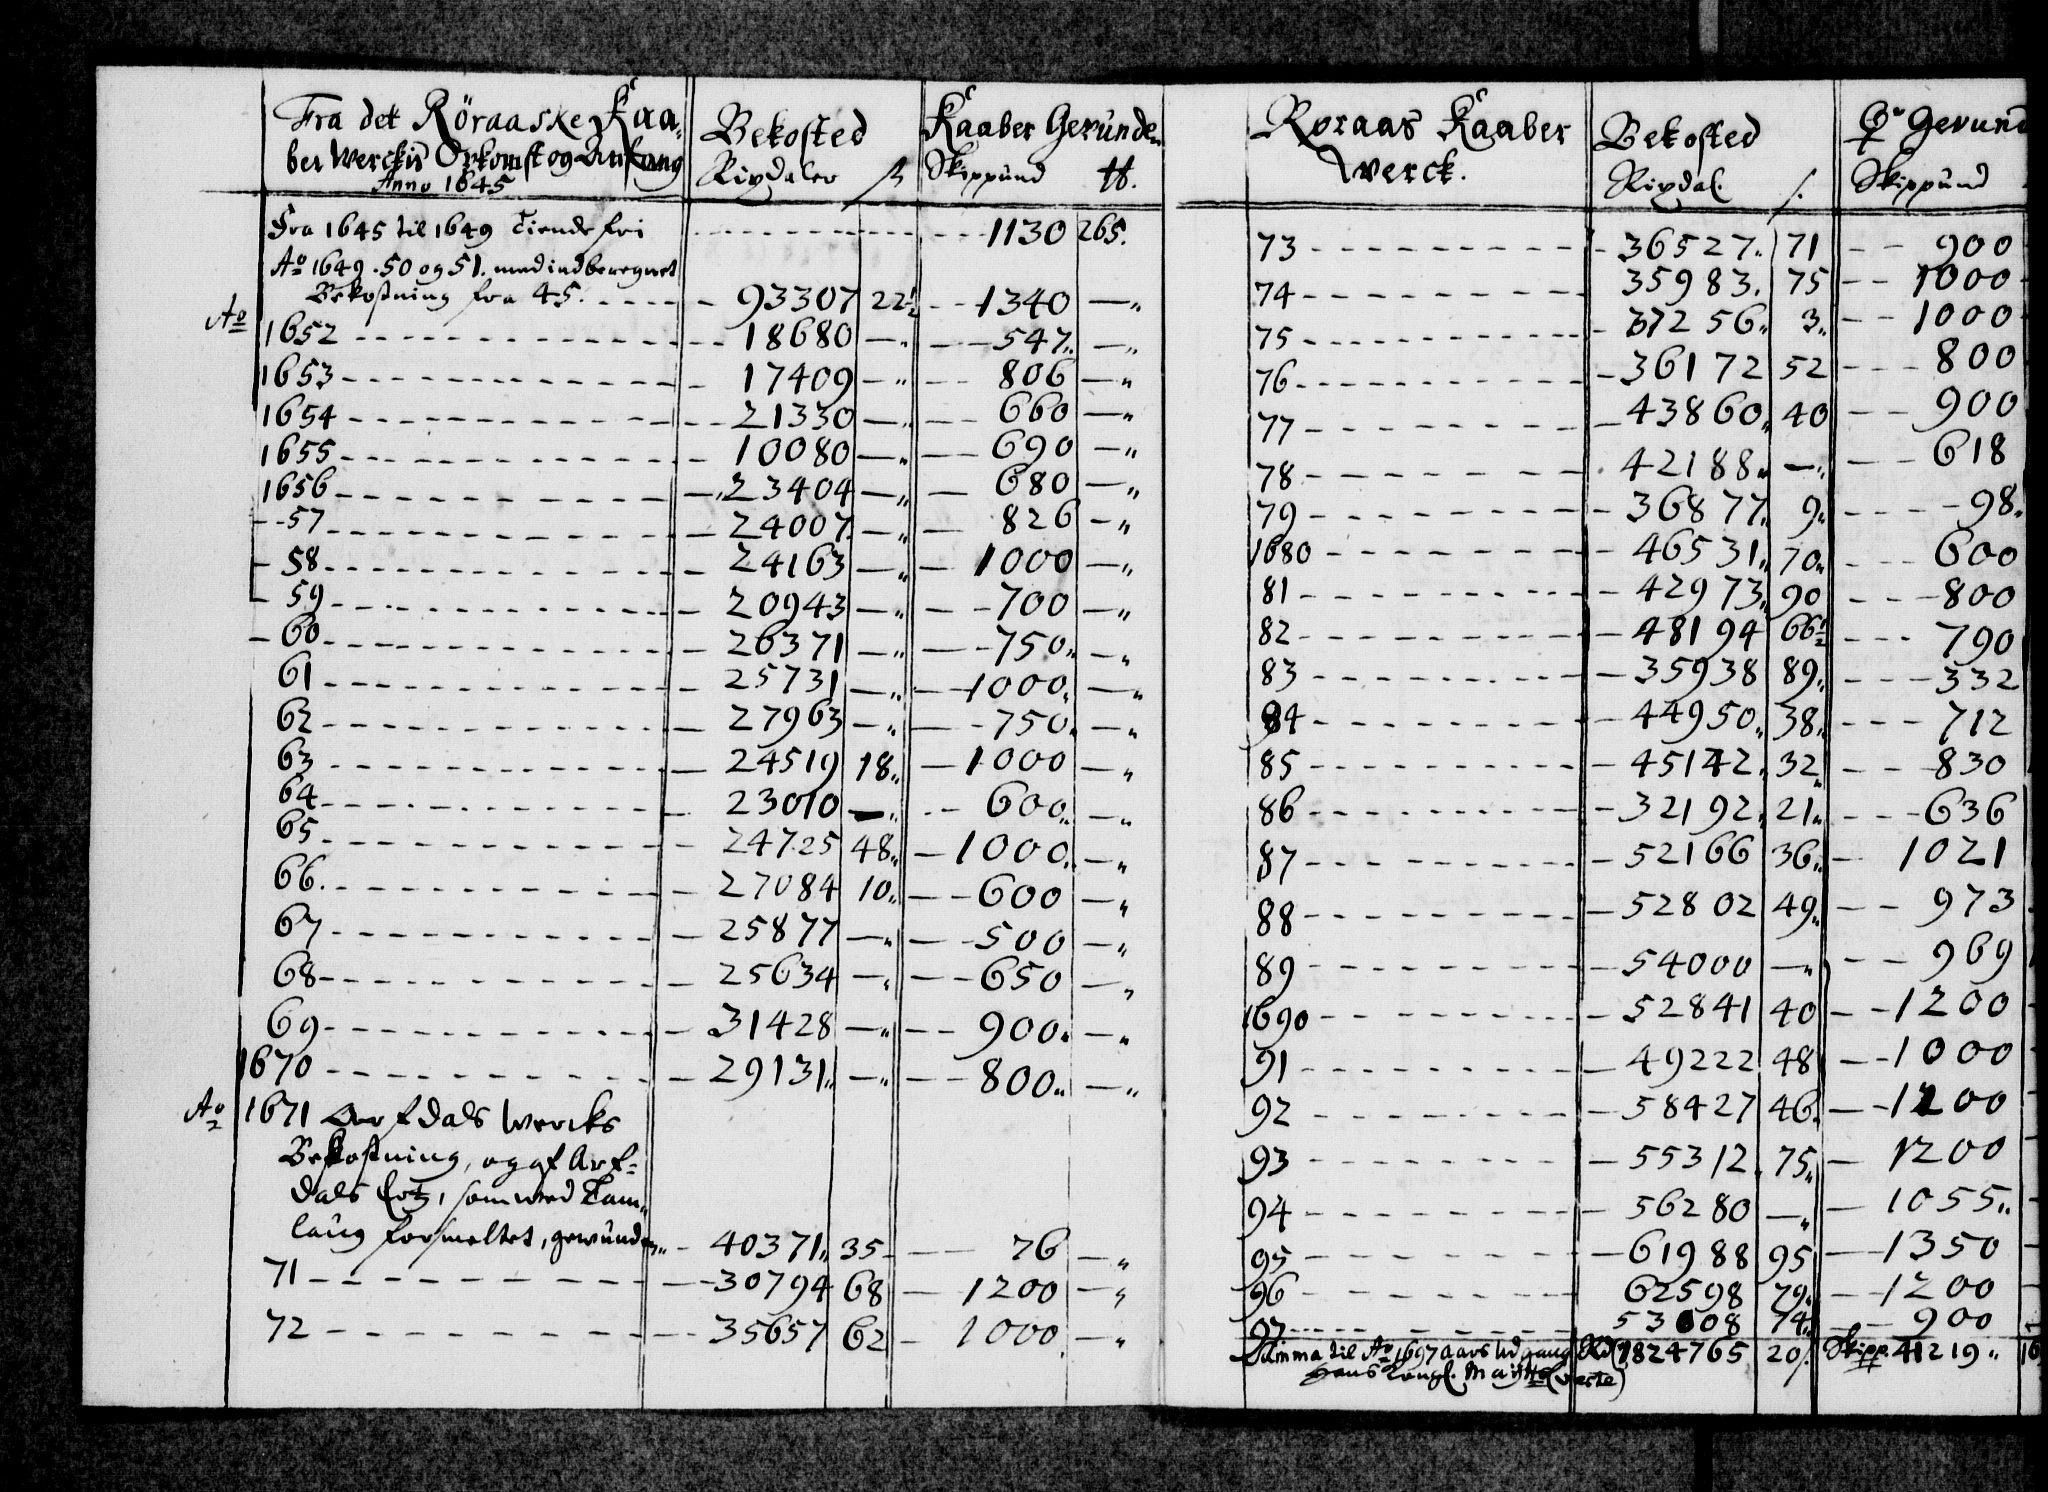 Fra det Röraaske Kaa-
ber Werckis Opkomst og Anfang
Anno 1645
Bekosted
Rixdaler ß
Kaaber Gevunden
Skippund ℔.
Fra 1645 til 1649 Tiende fri 1130 265.
Ao 1649. 50 og 51. med indberegnet
Bekostning fra 45. 93307 22½ 1340 — „
Ao
1652 18680 — „ 547 „ — „
1653 17409 — „ 806 — „
1654 21330 — „ 660 — „
1655 10080 — „ 690 — „
1656 23404 — „ 680 — „
57 24007 — „ 826 — „
58 24163 — „ 1000 — „
59 20943 — „ 700 — „
60 26371 — „ 750 „ — „
61 25731 — „ 1000 „ — „
62 27963 — „ 750 „ — „
63 24519 18 „ 1000 — „
64 23010 — „ 600 „ — „
65 24725 48 „ 1000 „ — „
66. 27084 10 „ 600 — „
67 25877 — „ 500 — „
68 25634 — „ 650 — „
69 31428 — „ 900 „ — „
1670 29131 „ — „ 800 „ — „
Ao 1671 Wercks
Bekostning, og af Arf-
dals Ertz, som wed Tam-
laug forsmeltet, gewunden „ 40371 „ 35 76 — „
71 30794 68 1200 — „
72 35657 62 1000 — „
Roraas Kaaber
Werck.
Bekosted
Rixdal. ß.
Gevund
Skippund
73 36527 „ 71 900
74 35983. 75 1000
75 37256 „ 3 „ 1000
76 36172 52 800
77 43860 „ 40 900
78 42188 „ — „ 618
79 36877 „ 9 „ 98 „
1680 46531 „ 70 „ 600
81 42973 „ 90 800
82 48194 66½ 790
83 35938 89 „ 332
84 44950 „ 38 „ 712
85 45142 „ 32 „ 830
86 32192 „ 21 „ 636
87 52166 36 „ 1021
88 52802 49 „ 973
89 54000 — „ 969
1690 52841 40 1200
91 49222 48 1000
92 58427 46 „ 1200
93 55312 „ 75 „ 1200
94 56280 — „ 1055 „
95 61988 95 1350
96 62598 79 „ 1200
97 53008 74 „ 900
Summa til Ao 1697 aars Udgang Rd 1824765 20 ß. Skipp. 41219 „ 16
Hans Kongl. Maytts (verte)